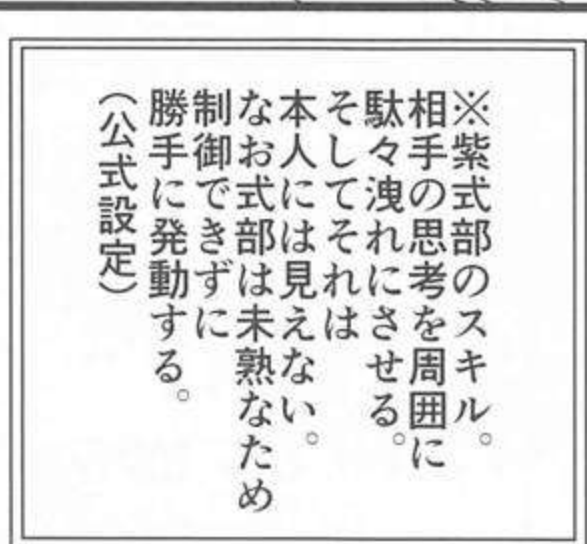 ※紫式部のスキル。
相手の思考を周囲に
駄々洩れにさせる。
そしてそれは
本人には見えない。
なお式部は未熟なため
制御できずに
勝手に発動する。
（公式設定）